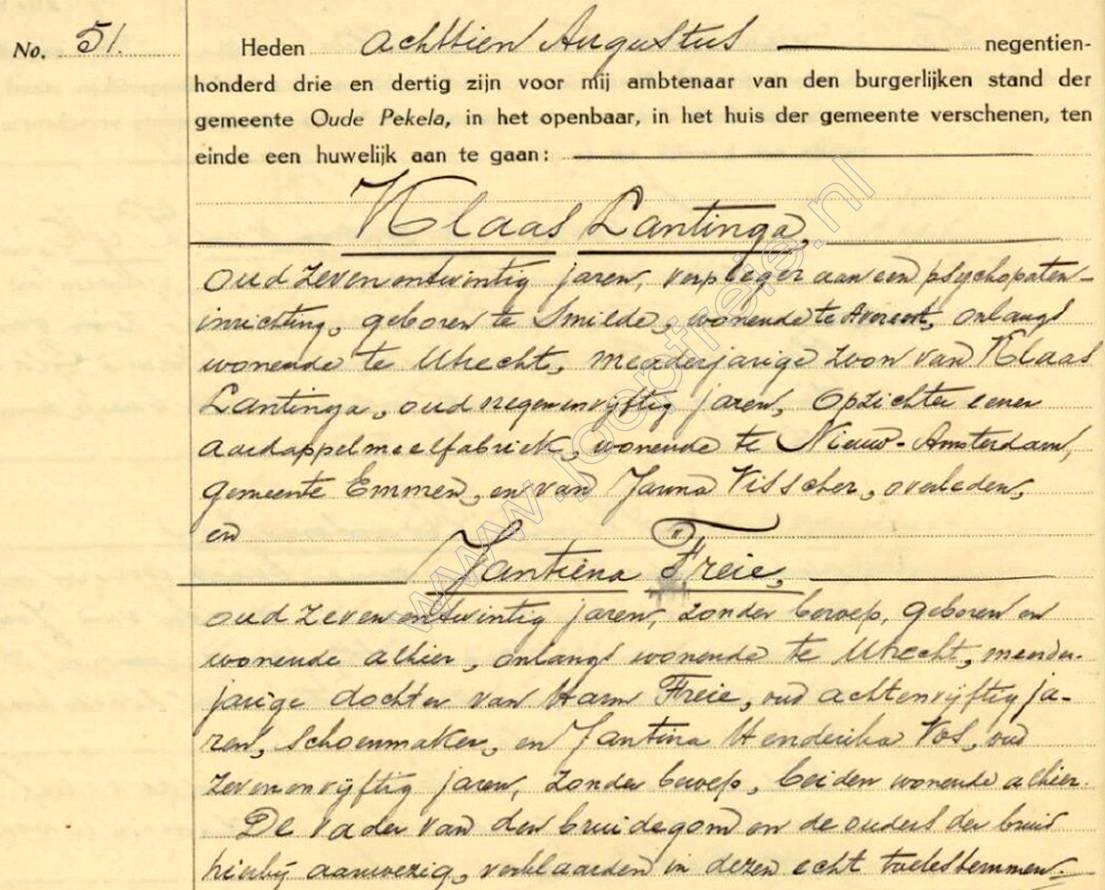 No. 51.
Heden achttien Augustus negentien-
honderd drie en dertig zijn voor mij ambtenaar van den burgerlijken stand der
gemeente Oude Pekela, in het openbaar, in het huis der gemeente verschenen, ten
einde een huwelijk aan te gaan:
Klaas Lantinga,
oud zevenentwintig jaren, verpleger aan een psychopaten-
inrichting, geboren te Smilde, wonende te Avereest, onlangs
wonende te Utrecht, meerderjarige zoon van Klaas
Lantinga, oud negenenvijftig jaren, opzichter eener
aardappelmeelfabriek, wonende te Nieuw-Amsterdam,
gemeente Emmen, en van Janna Visscher, overleden,
en
Jantiena Freie,
oud zevenentwintig jaren, zonder beroep, geboren en
wonende alhier, onlangs wonende te Utrecht, meerder-
jarige dochter van Harm Freie, oud achtenvijftig ja-
ren, schoenmaker, en Jantina Henderika Vos, oud
zevenenvijftig jaren, zonder beroep, beiden wonende alhier.
De vader van den bruidegom en de ouders der bruid
hierbij aanwezig, verklaarden in dezen echt toetestemmen.
www.joopfreie.nl